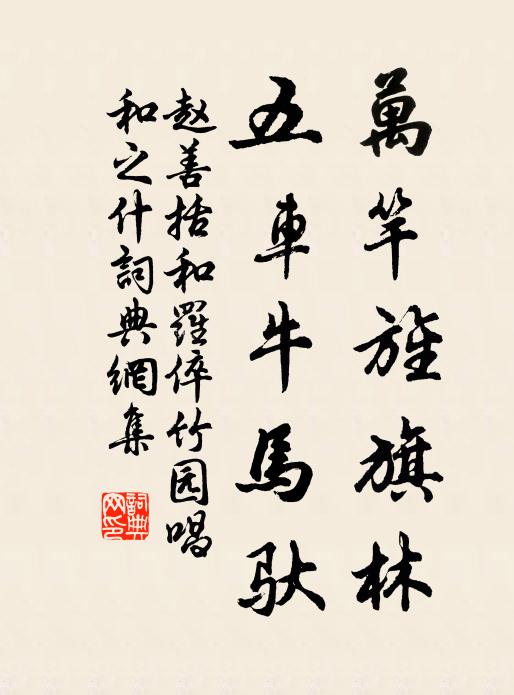 萬竿旌旗林
五車牛馬驮
赵善括和羅倅竹园唱
和之什詞典網集
詞典網印